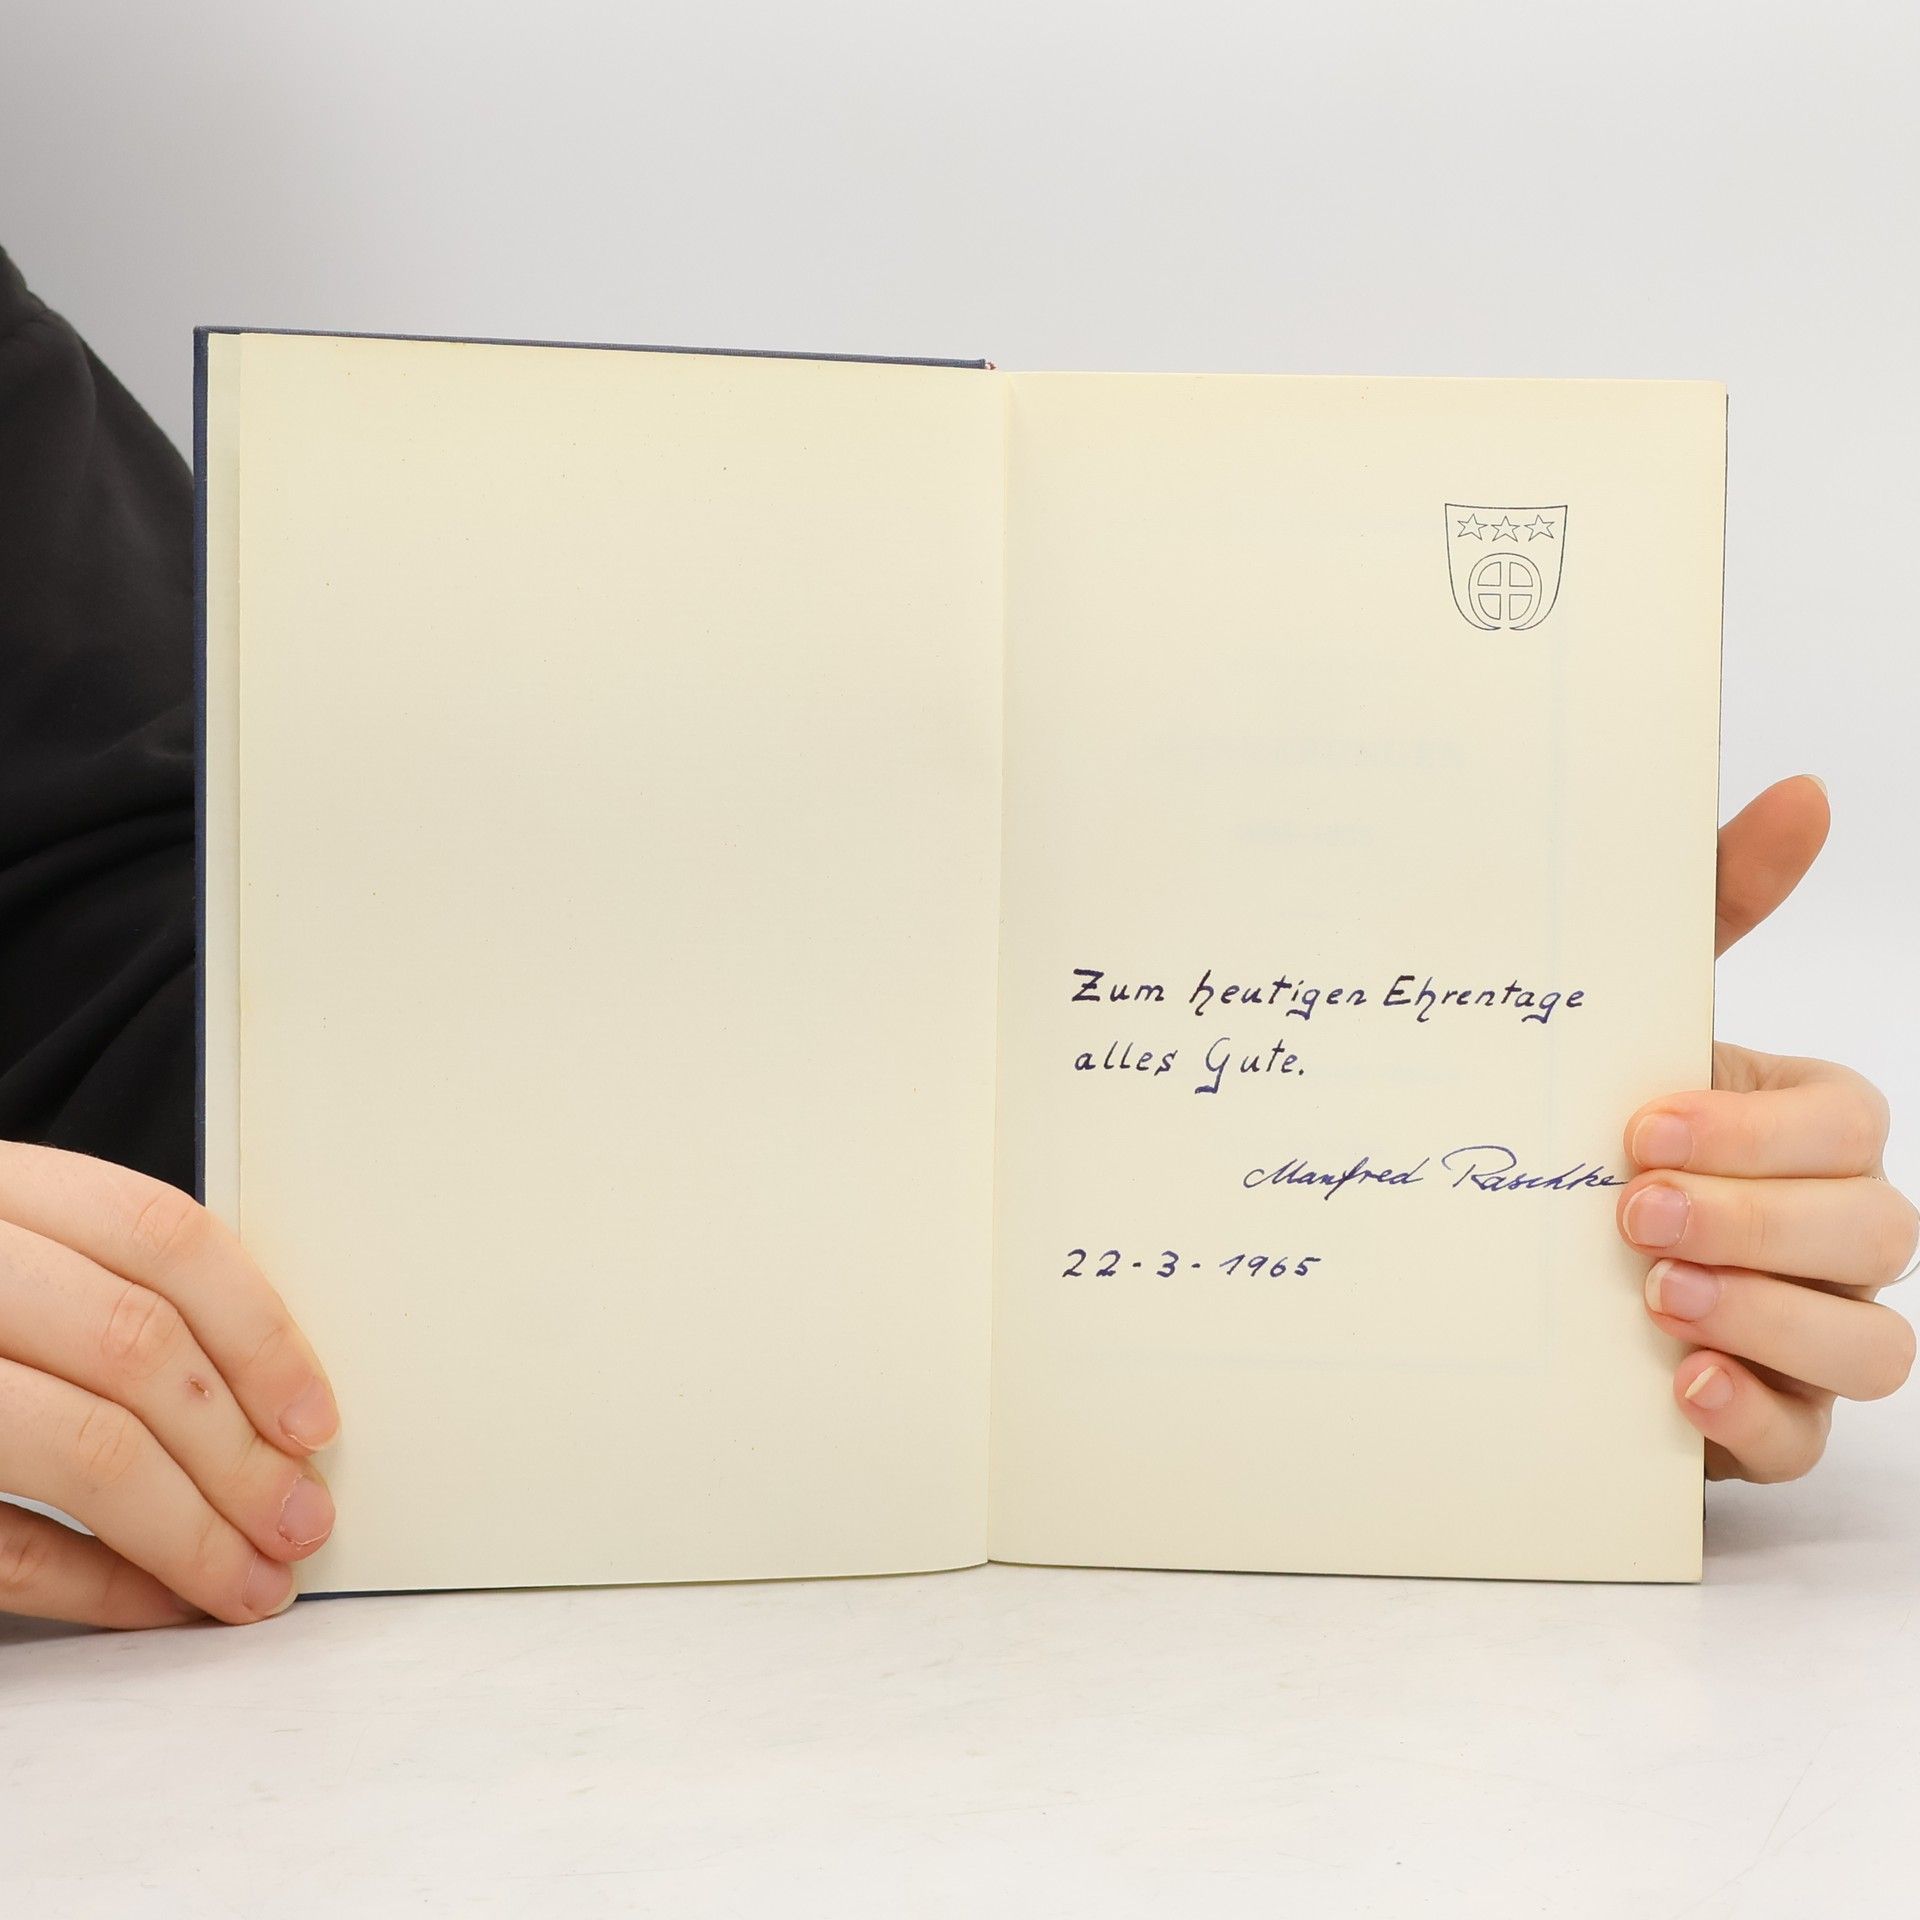 Zum heutigen Ehrentage
alles Gute.
Manfred Raschke
22-3-1965